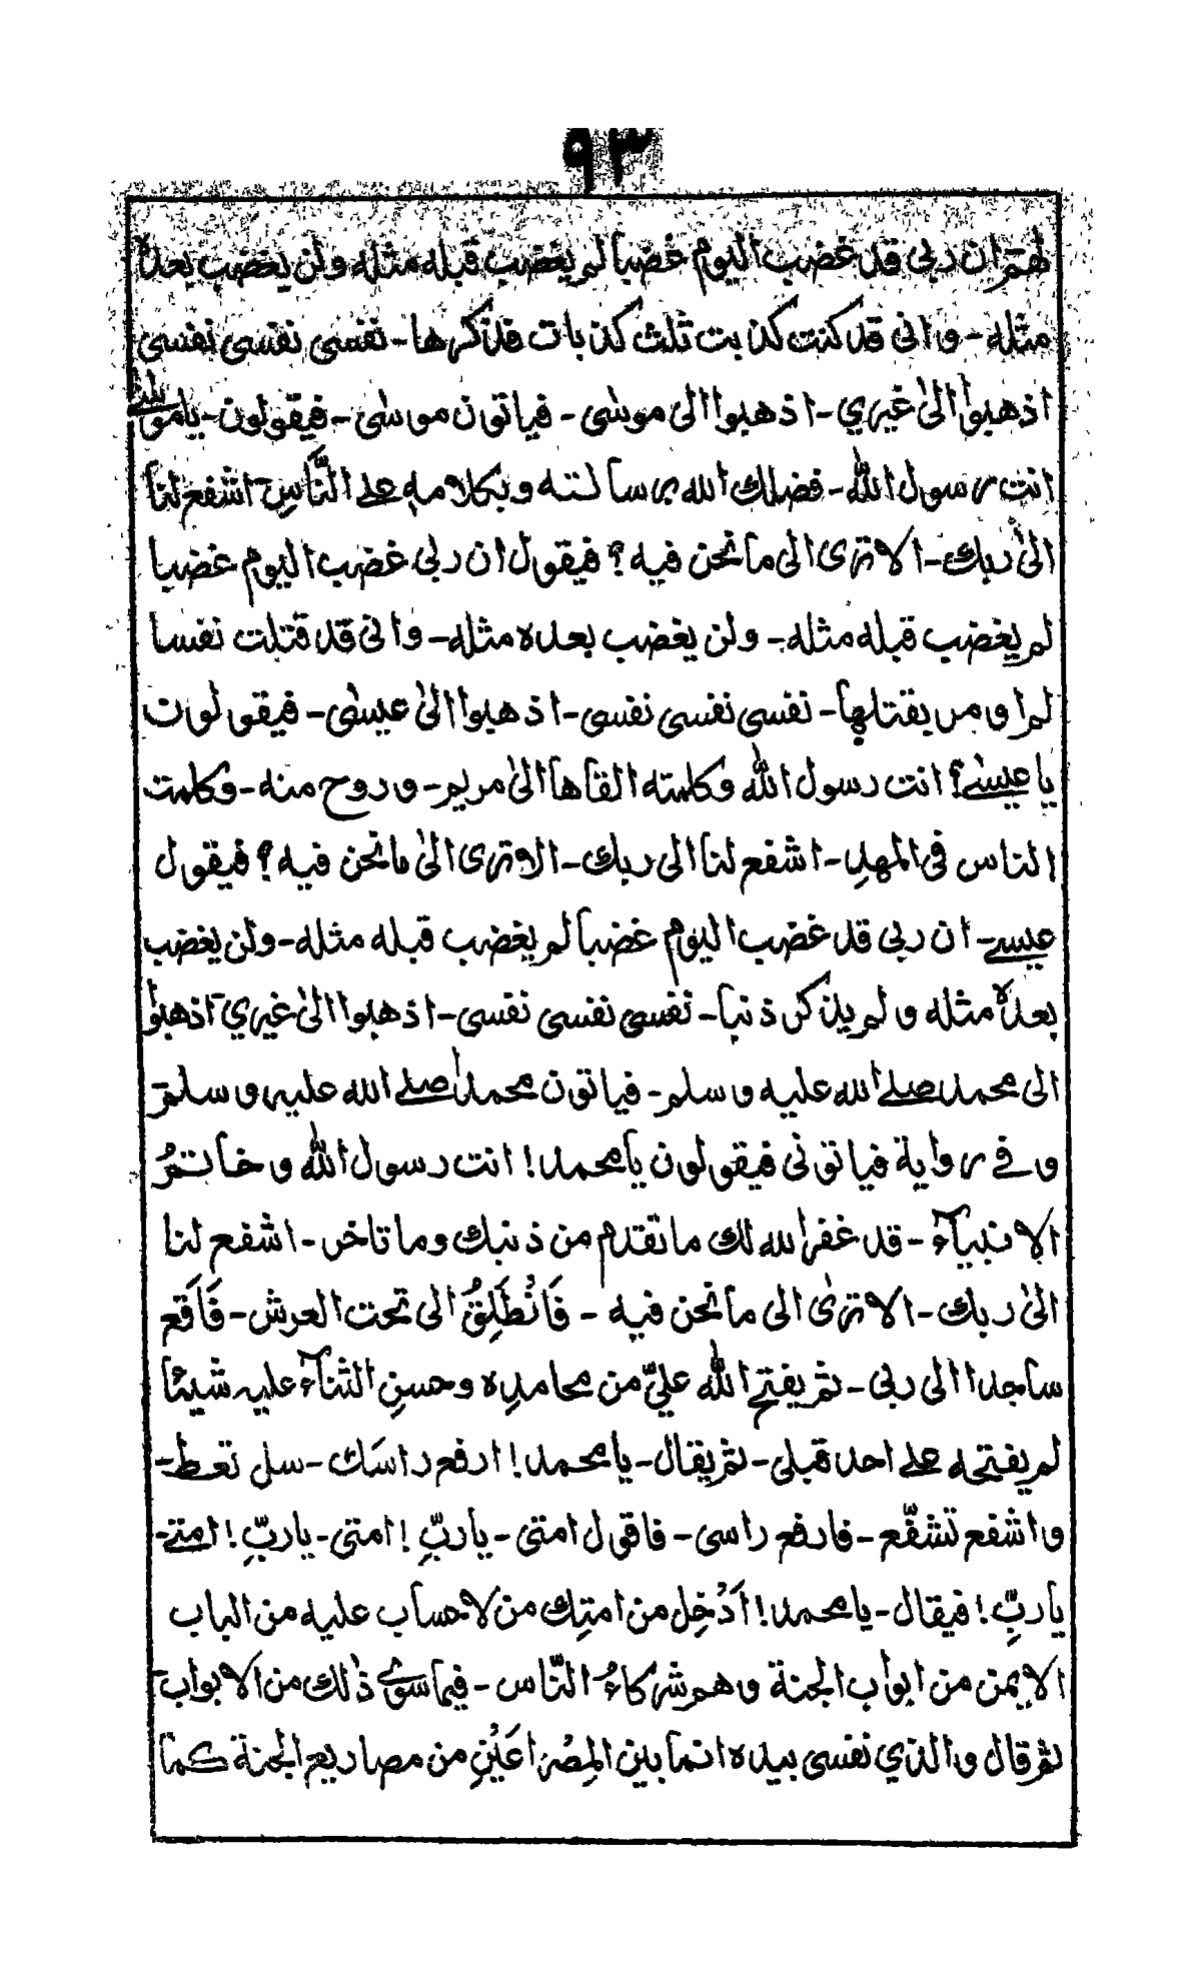 ٩٣
لهم ان ربي قد غضب اليوم غضبا لم يغضب قبله مثله ولن يغضب بعدہ
مثله - وانى قد كنت كذبت ثلث كذبات فذكرها - نفسى نفسى نفسى
اذهبوا الىٰ غيري - اذهبوا الى موسٰى - فياتون موسٰى - فيقولون - يا موسٰى
انت رسول اللّٰه - فضلك الله برسالته وبكلامه على النَّاسِ اشفع لنا
الىٰ ربك - الا ترى الى ما نحن فيه ؟ فيقول ان ربى غضب اليوم غضبا
لم يغضب قبله مثله - ولن يغضب بعده مثله - وانى قد قتلت نفسا
لم اومر بقتلها - نفسى نفسى نفسى - اذهبوا الىٰ عيسٰى - فيقولون
يا عيسٰى ! انت رسول اللّٰه وكلمته القاها الىٰ مريم - وروح منه - وكلمت
الناس فى المهدِ - اشفع لنا الى ربك - الا ترى الىٰ ما نحن فيه ؟ فيقول
عيسے - ان ربى قد غضب اليوم غضبا لم يغضب قبله مثله - ولن يغضب
بعدہ مثله ولم يذكر ذنبا - نفسى نفسى نفسى - اذهبوا الىٰ غيري اذهبوا
الى محمد صلے الله عليه وسلم - فياتون محمدا صلے الله عليه وسلم
وفے رواية فياتونى فيقولون يا محمد ! انت رسول اللّٰه وخاتمُ
الانبيآء - قد غفر الله لك ما تقدم من ذنبك وما تاخر - اشفع لنا
الىٰ ربك - الا ترىٰ الى ما نحن فيه - فَانْطَلِقُ الى تحت العرش - فَاَقع
ساجدا الى ربى - ثم يفتح اللّٰه عليّ من محامدِه وحسنِ الثنآء عليه شيئا
لم يفتحه على احد قبلى - ثم يقال - يا محمد ! ارفع راسَك - سل تعط -
واشفع تشفّع - فارفع راسى - فاقول امتى - يا ربِّ ! امتى - يا ربِّ ! امتے -
يا ربِّ ! فيقال - يا محمد ! اَدْخِل من امتِك من لا حساب عليه من الباب
الايمن من ابواب الجنة وهم شركاءُ النّاس - فيما سوٰى ذٰلك من الابواب
ثم قال والذي نفسى بيده ان ما بين المِصْرَاعَيْنِ من مصاريع الجنة كما